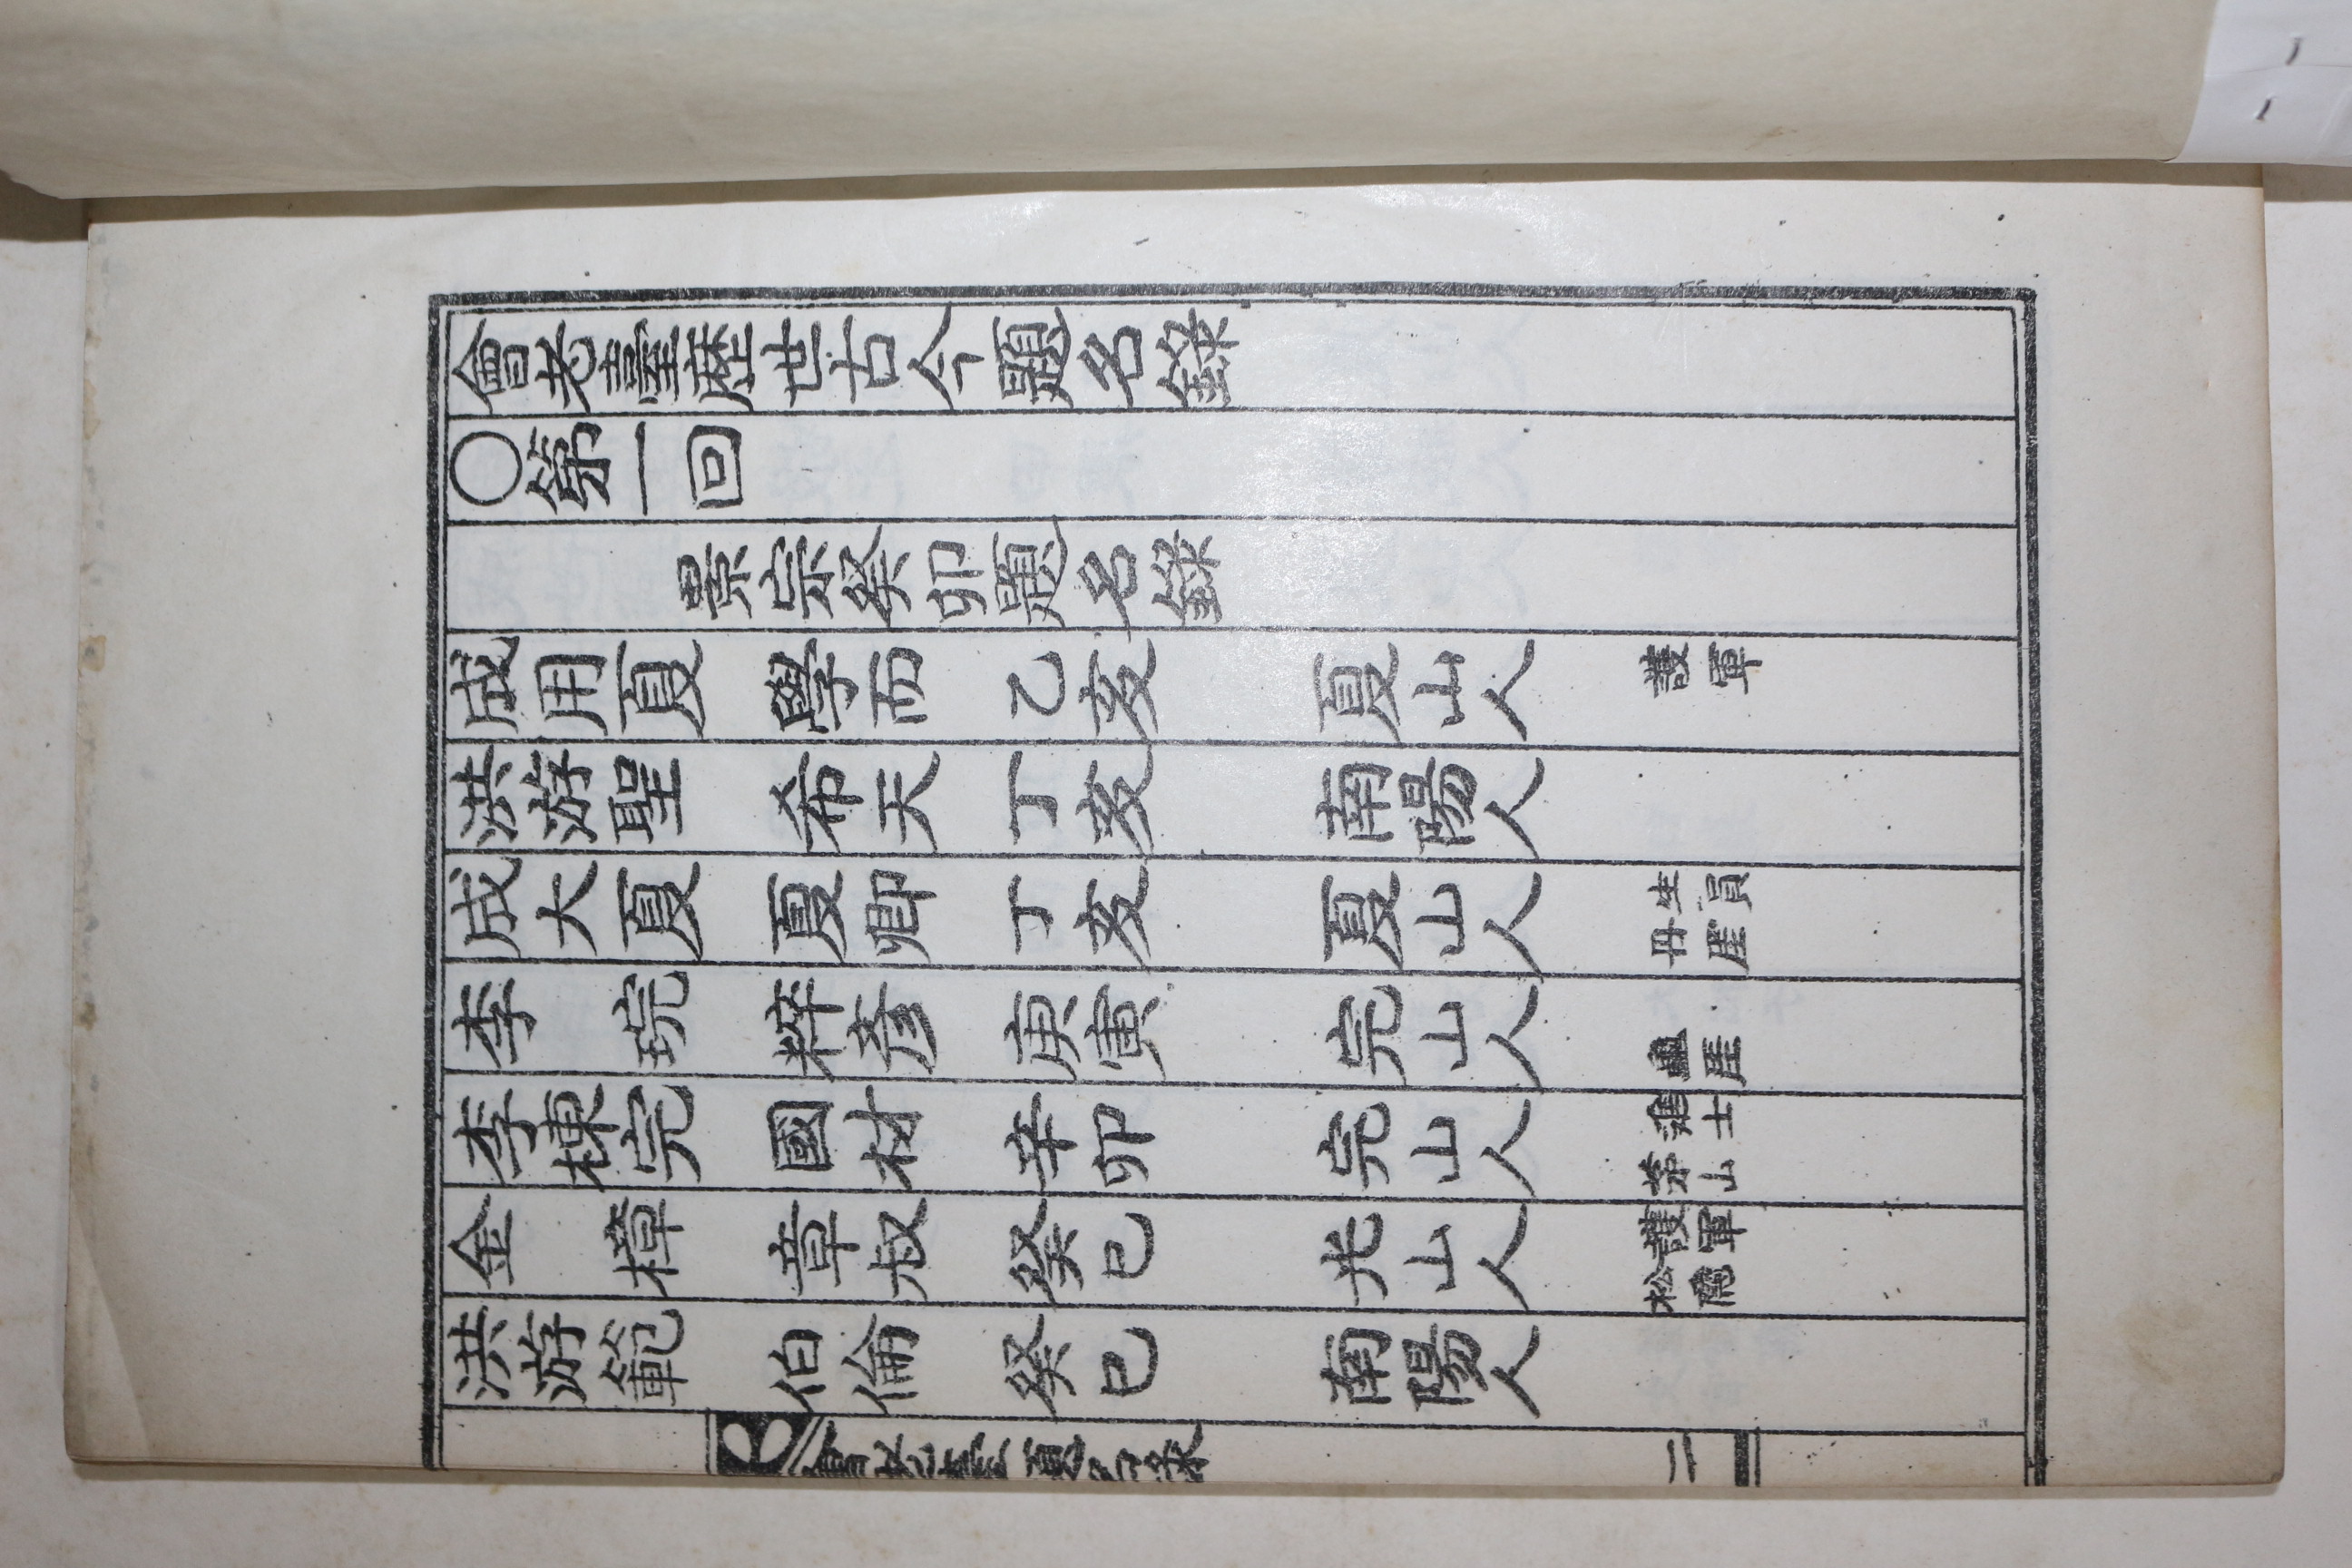 會老臺歷世古今題名錄
○第一回
景宗癸卯題名錄
成用夏 學而 乙亥 夏山人 護軍
洪游聖 希天 丁亥 南陽人
成大夏 夏卿 丁亥 夏山人 生員 丹崖
李 琓 粹彥 庚寅 完山人 崖
李棟完 國材 辛卯 完山人 進士 茅山
金 樟 章叔 癸巳 光山人 護軍 松隱
洪游範 伯倫 癸巳 南陽人
會老臺題名錄 二